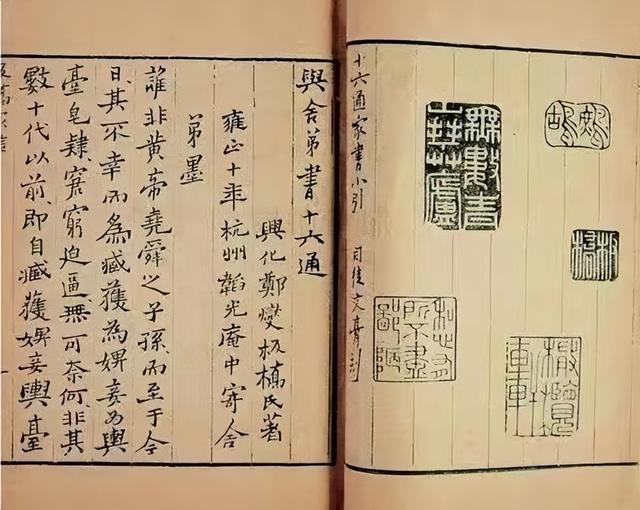 鷓鴣
所不盡
十六通家書小引
司徒文膏刻
與舍弟書十六通
興化鄭燮板橋氏著
雍正十年杭州韜光庵中寄舍
弟墨
誰非黃帝堯舜之子孫而至于今
日其不幸而為臧獲為婢妾為輿
臺皂隸窘窮迫逼無可奈何非其
數十代以前即自臧獲婢妾輿臺